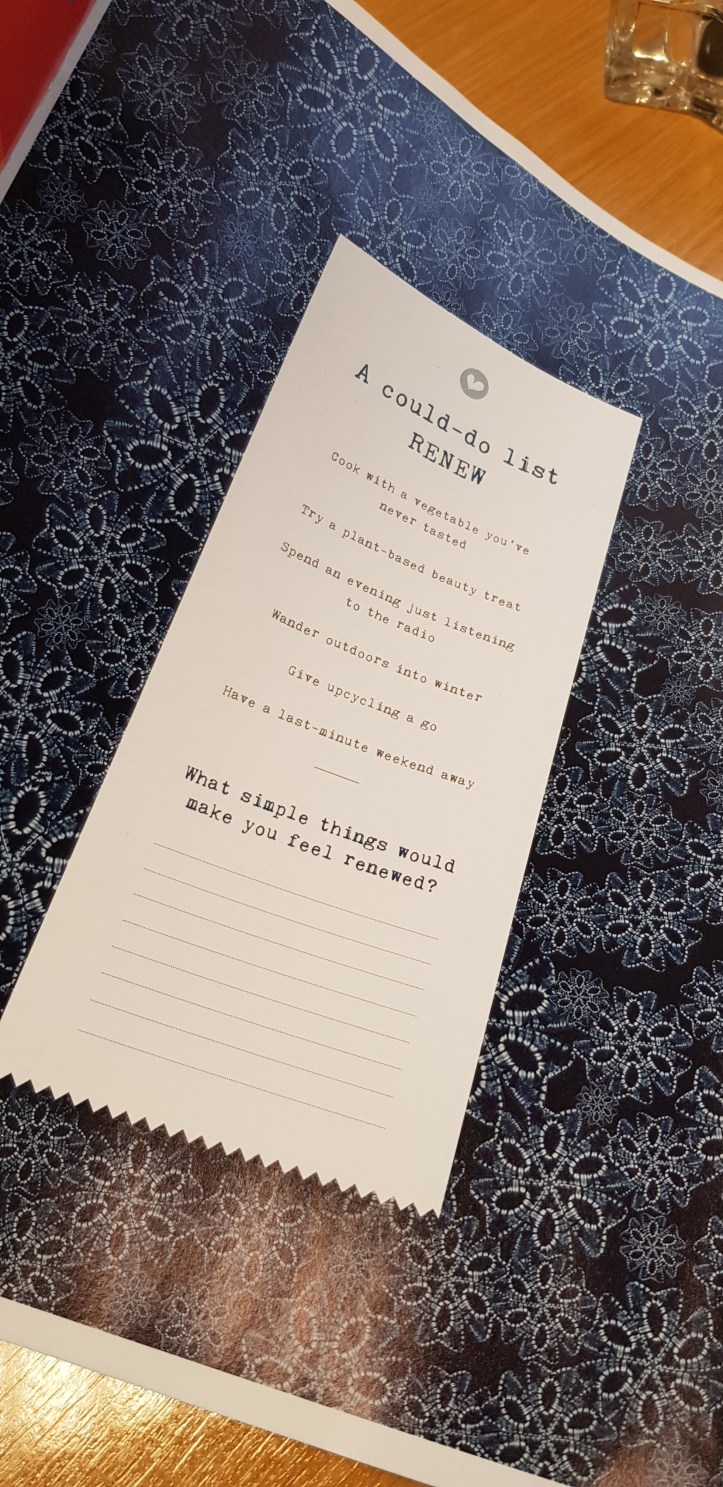 A could-do list
RENEW
Cook with a vegetable you've
never tasted
Try a plant-based beauty treat
Spend an evening just listening
to the radio
Wander outdoors into winter
Give upcycling a go
Have a last-minute weekend away
What simple things would
make you feel renewed?